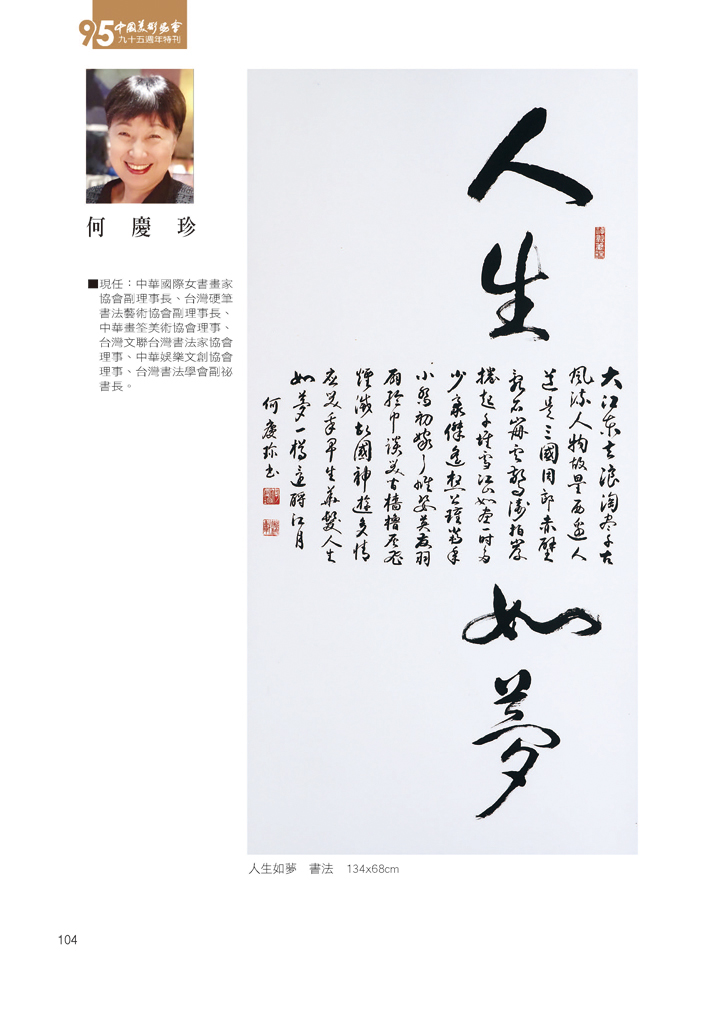 95 中國美術協會
九十五週年特刊
何慶珍
■現任：中華國際女書畫家
協會副理事長、台灣硬筆
書法藝術協會副理事長、
中華畫筌美術協會理事、
台灣文聯台灣書法家協會
理事、中華娛樂文創協會
理事、台灣書法學會副祕
書長。
人生如夢
大江东去浪淘尽千古
風流人物故壘西邊人
道是三國周郎赤壁
亂石崩雲驚濤拍岸
捲起千堆雪江山如畫一時多
少豪傑遙想公瑾當年
小喬初嫁了雄姿英發羽
扇綸巾談笑檣櫓灰飛
煙滅故國神遊多情
应笑我早生華髮人生
如夢一樽還酹江月
何慶珍書
人生如夢　書法　134x68cm
104